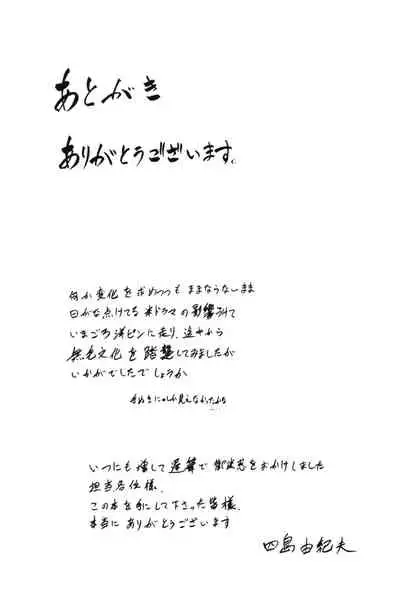 あとがき
ありがとうございます。
何か変化を求めつつもままならないまま
日がな点けてる米ドラマの影響うけて
いまごろ洋ピンに走り、遠々から
無毛文化を踏襲してみましたが
いかがでしたでしょうか
いつにも増して遅筆で御迷惑をおかけしました
担当各位様、
この本を手にして下さった皆様、
本当にありがとうございます
四島由紀夫